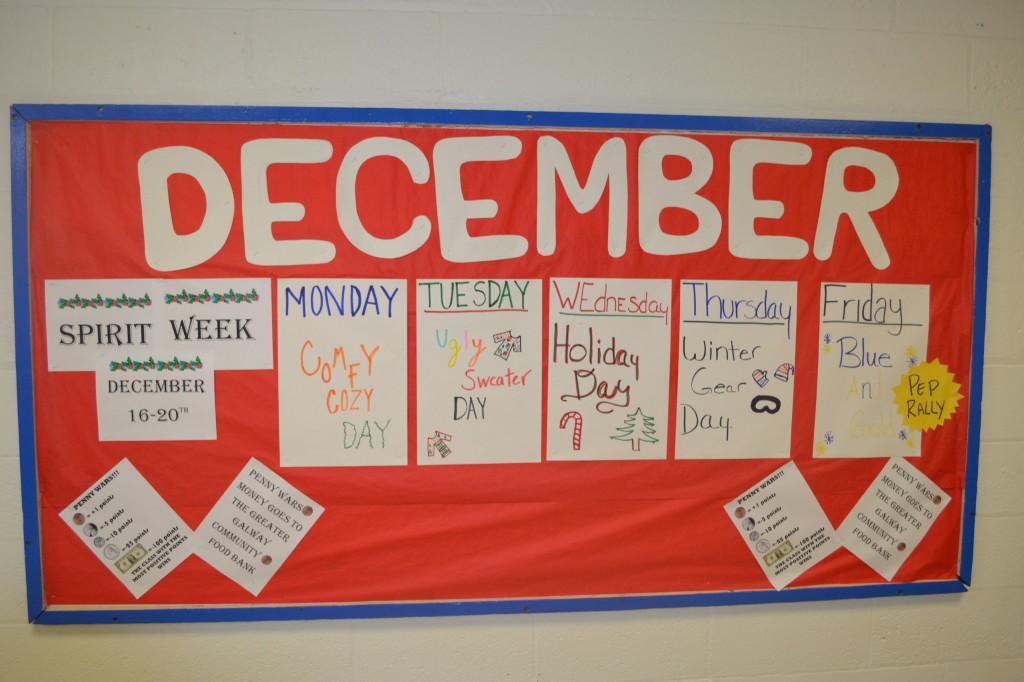 DECEMBER
SPIRIT WEEK
DECEMBER
16-20TH
MONDAY
COMFY
COZY
DAY
TUESDAY
Ugly
Sweater
DAY
WEdnesday
Holiday
Day
Thursday
Winter
Gear
Day
Friday
Blue
And
Gold
PEP
RALLY
PENNY WARS!!!
= +1 points
=-5 points
=-10 points
=-25 points
=-100 points
THE CLASS WITH THE
MOST POSITIVE POINTS
WINS
PENNY WARS
MONEY GOES TO
THE GREATER
GALWAY
COMMUNITY
FOOD BANK
PENNY WARS!!!
= +1 points
=-5 points
=-10 points
=-25 points
=-100 points
THE CLASS WITH THE
MOST POSITIVE POINTS
WINS
PENNY WARS
MONEY GOES TO
THE GREATER
GALWAY
COMMUNITY
FOOD BANK